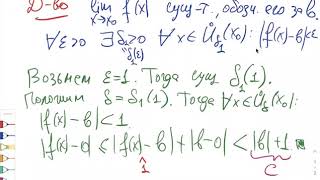 Д-во lim f(x) сущ-т, обозн. его за b.
x→x₀
∀ε>0 ∃δ₁>0 ∀x∈Ů_δ₁(x₀): |f(x)-b|<ε
δ₁(ε)
Возьмем ε=1. Тогда сущ. δ₁(1).
Положим δ=δ₁(1). Тогда ∀x∈Ů_δ(x₀):
|f(x)-b|<1.
|f(x)-0|≤|f(x)-b|+|b-0|<|b|+1
1 C